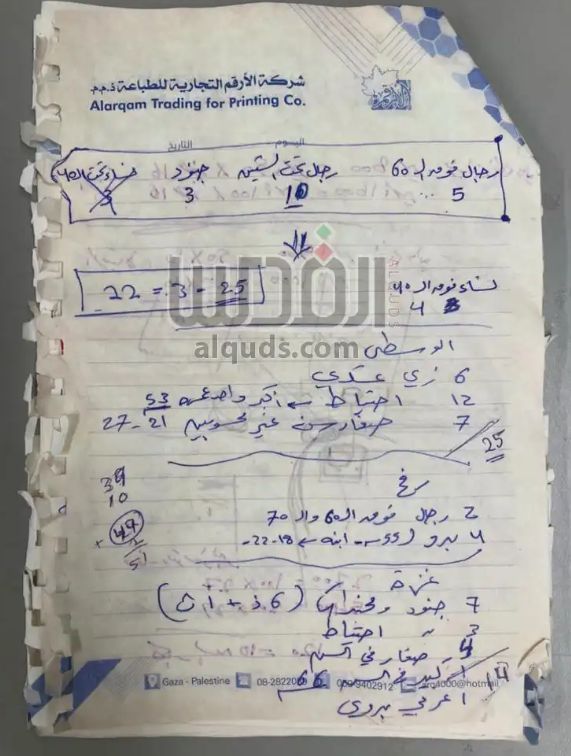 شركة الأرقم التجارية للطباعة ذ.م.م
Alarqam Trading for Printing Co.
اليوم التاريخ
رجال فوق الـ 60 رجال تحت الستين جنود نساء تحت الـ
5 10 3 3
نساء فوق الـ 40
4
25 - 3 = 22
القدس
ALQUDS
alquds.com
الوسطى
6 زي عسكري
12 احتياط ← أكبر واحد عمره 53
7 صغار سن غير محسوبين 21-27
25
رفح
2 رجال فوق الـ 60 والـ 70
4 بدو ابنه ← 18-22
39
10
+ 47
51
غزة
7 جنود ومجندات (6 ذ + 1 ث)
3 " احتياط
4 صغار في السن
1 كبير في السن 66
1 عربي بدوي
14
Gaza - Palestine
08-2822
059-9402912
arq4000@hotmail